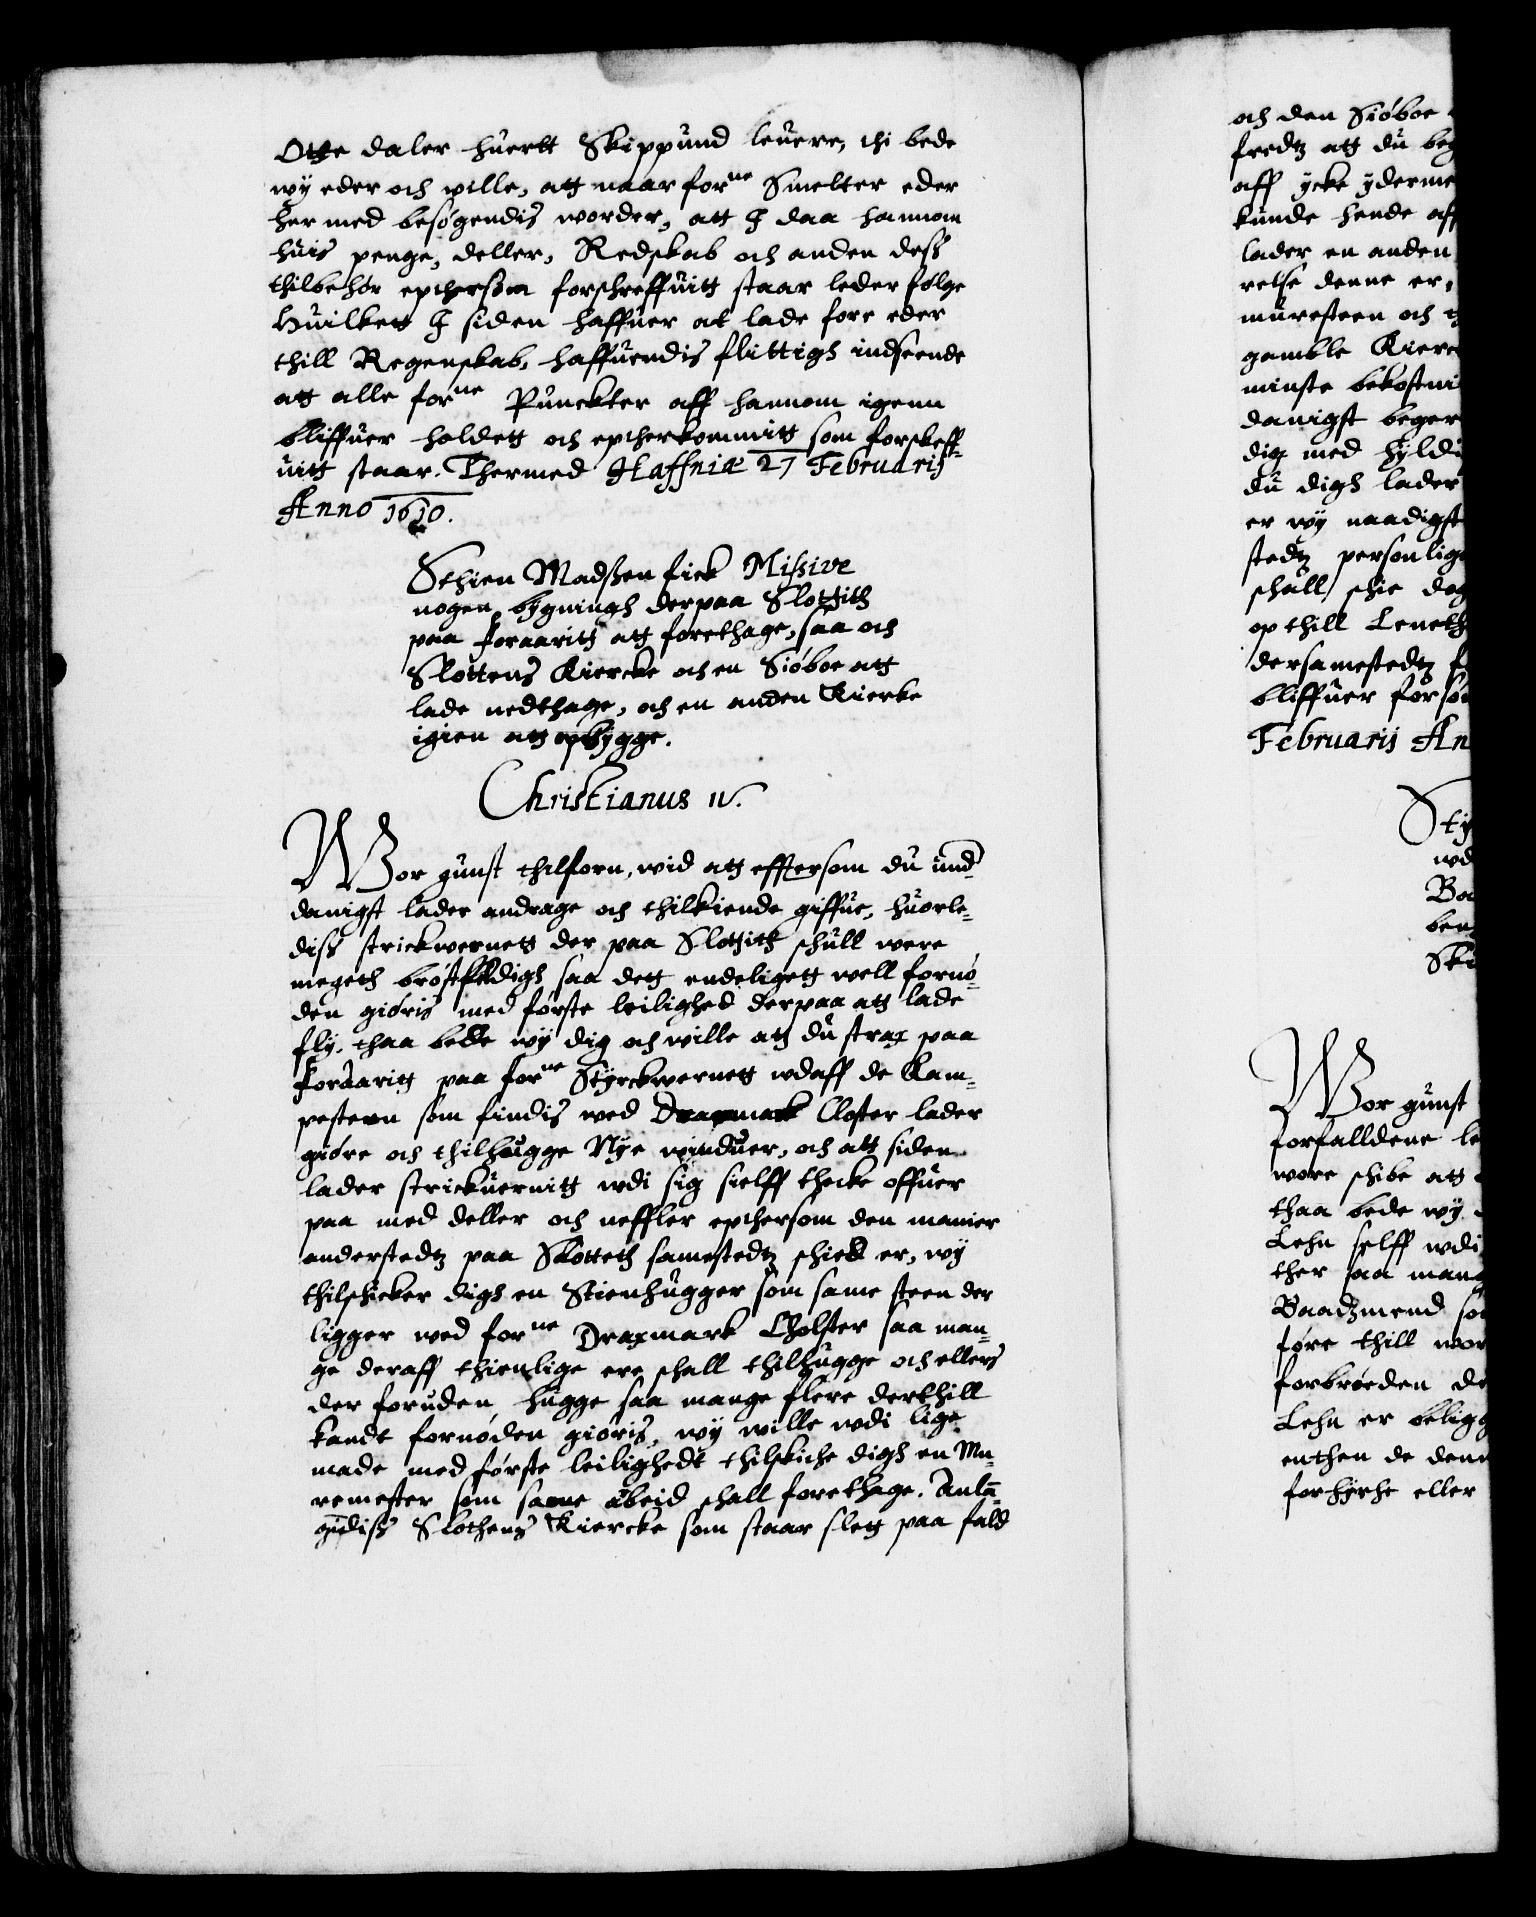 Otte daler huertt Skippund leuere, thi bede
wy eder och wille, att naar forne Smelter eder
her med besøgendis worder, att I daa hannom
huis penge, deller, Redskab och anden desz
thilbehør epthersom forschreffuitt staar leder følge
Huilkett I siden haffuer at lade føre eder
thill Regenskab, haffuendis flittigh indseende
att alle forne Punckter aff hannom igenn
bliffuer holdett och eptherkommitt som forskeff-
uitt staar. Thermed Haffniæ 27 Februarij
Anno 1610.
Sthien Madszen fick Missive
nogen bygningh derpaa Slottith
paa foraaritt att forethage, saa och
Slottens Kiercke och en Siøboe att
lade nedthage, och en anden Kierke
igien att opbygge.
Christianus IV.
Wor gunst thilforn, wid att effttersom du und-
danigst lader andrage och thilkiende giffue, huorle-
disz strickwernett der paa Slottith schull were
megeth brøstfeldigh saa dett endeligett well fornø-
den giøris med første leilighed derpaa att lade
fly, thaa bede wy dig och wille att du strax paa
foraaritt paa forne Styrckwernett wdaff de Kam-
pesteen som findis wed Draxmark Closter lader
giøre och thilhugge Nye winduer, och att siden
lader strickuernitt wdi sig sielff thecke offuer
paa med deller och neffler epthersom den manier
anderstedtz paa Slotteth samestedtz schick er, wy
thilschicker digh en Stienhugger som same steen der
ligger wed forne Draxmark Cholster saa man-
ge deraff thienlige ere schall thilhugge och ellers
der foruden hugge saa mange flere derthill
kandt fornøden giøris, wy wille wdi lige
made med første leilighedt thilskiche digh en Mu-
remester som same abeid schall forethage. Anla-
gudisz Slothens Kiercke som staar slett paa fald
och den Siøboe
fredtz att du beg
aff ycke yderme
kunde hende aff
lader en anden
relse denne er,
muresteen och
gamble Kierc
minste bekostni
danigst beger
dig med hyldu
du digh lader
er wy naadigst
stedtz personlig
schall schie dog
op thill Leneth
dersamestedtz
bliffuer forsø
Februarij An
Sty
wd
Ba
ben
Ski
Wor gunst
forfalldene le
wore schibe att
thaa bede wy
Lehn selff wdi
ther saa mang
Baadzmend so
føre thill wor
forbrøeden de
Lehn er belligg
enthen de denn
forhyrhe eller